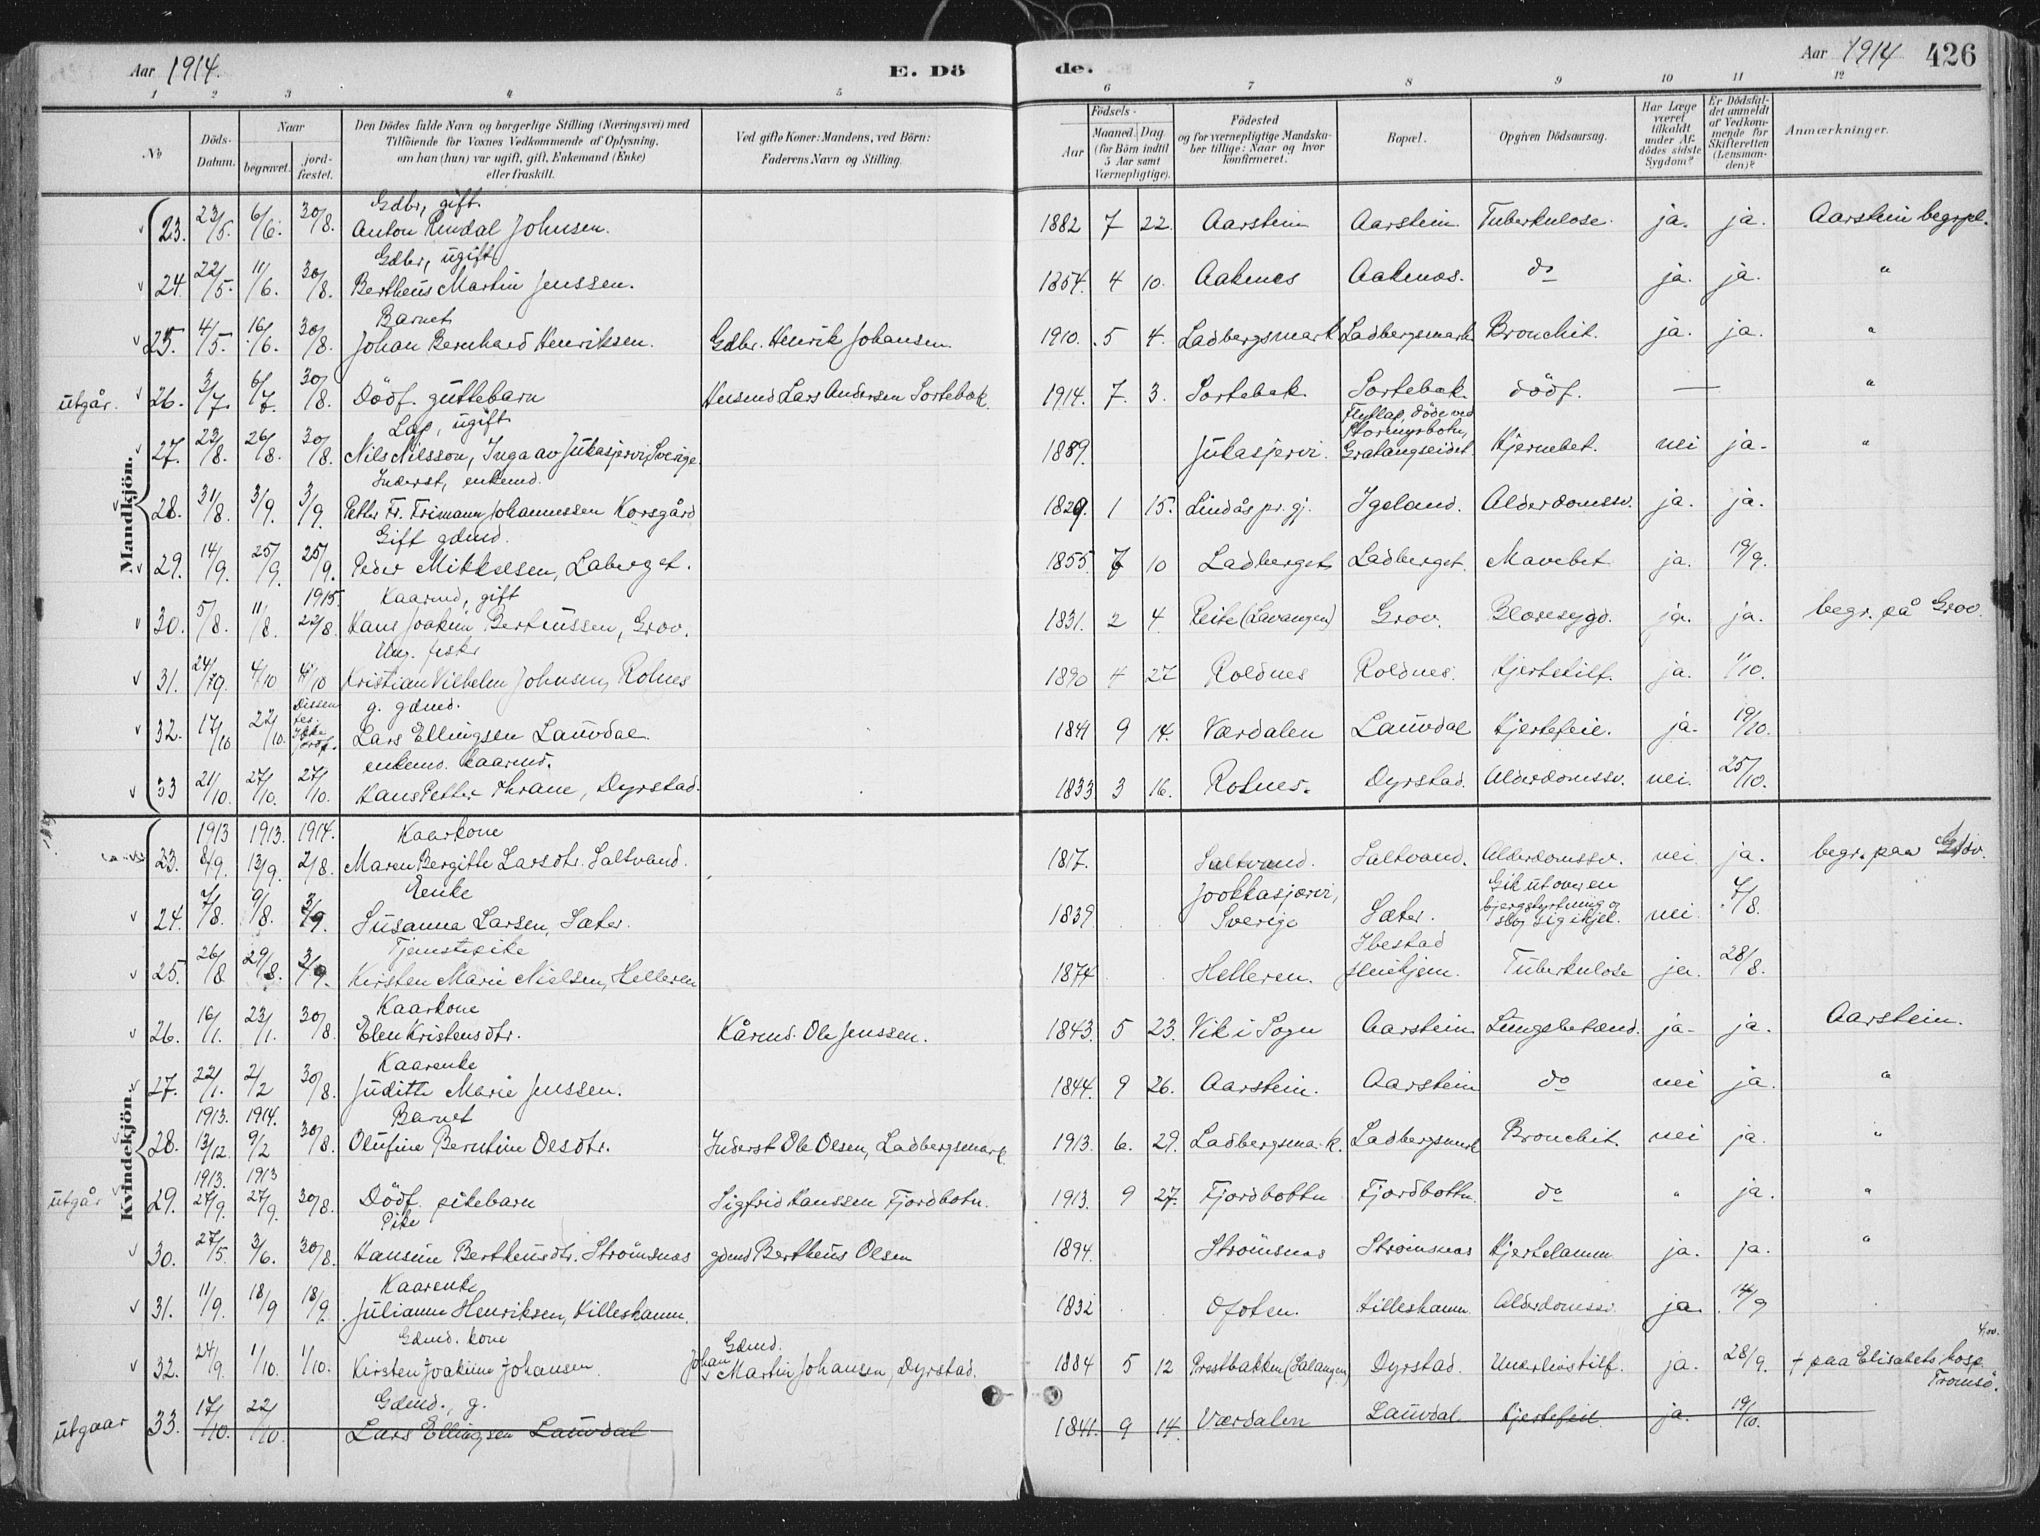 Aar 1914.
E. Dö
de.
Aar 1914
426
1 2 3 4 5 6 7 8 9 10 11 12
No
Döds-Datum.
Naar
begravet.
jord-fæstet.
Den Dödes fulde Navn og borgerlige Stilling (Næringsvei) med
Tilföiende for Voxnes Vedkommende af Oplysning,
om han (hun) var ugift, gift, Enkemand (Enke)
eller fraskilt.
Ved gifte Koner: Mandens, ved Börn:
Faderens Navn og Stilling.
Födsels-
Aar
Maaned. Dag
(for Börn indtil
5 Aar samt
Værnepligtige).
Födested
og for værnepligtige Mandska-
ber tillige: Naar og hvor
konfirmeret.
Bopæl.
Opgiven Dödsaarsag.
Har Læge
været
tilkaldt
under Af-
dödes sidste
Sygdom?
Er Dödsfal-
det anmeldt
af Vedkom-
mende for
Skifteretten
(Lensman-
den)?
Anmærkninger.
Mandkjön.
Gdbr, gift
23. 23/5. 6/6. 30/8. Anton Rindal Johnsen. 1882 7 22. Aarstein Aarstein. Tuberkulose. ja. ja. Aarstein begrpl.
Gdbr, ugift
24. 22/5. 11/6. 30/8. Bertheus Martin Jenssen. 1854. 4 10. Aakenes Aakenæs. do ja. ja. "
Barnet
25. 4/5. 16/6. 30/8. Johan Bernhard Henriksen. Gdbr. Henrik Johansen. 1910. 5 4. Ladbergsmark Ladbergsmark Bronchit. ja. ja. "
utgår. 26. 3/7. 6/7. 30/8. Dödf. guttebarn Husmd Lars Andersen Sortebæk. 1914. 7. 3. Sortebæk Sortebæk. dödf. — "
Lap, ugift
Flytlap, döde ved
Stormyrbotn,
27. 23/8. 26/8. 30/8. Nils Nilsson, Inga av Jukasjervi, Sverige. 1889. Jukasjervi. Gratangseidet. Hjernebet. nei ja. "
Inderst, enkemd.
28. 31/8. 3/9. 3/9. Petter Fr. Frimann Johannessen Korsgård 1829. 1 15. Lindås pr.gj. Igeland. Alderdomssv. ja. ja.
Gift gdmd.
29. 14/9. 25/9. 25/9. Peder Mikkelsen, Laberget. 1855. 7 10 Ladberget Ladberget. Mavebet. ja. 19/9.
1915. Kaarmd, gift
30. 5/8. 11/8. 22/8. Hans Joakim Bertinussen, Grov. 1831. 2 4. Reite (Lavangen) Grov. Blæresygd. ja. ja. begr. på Grov.
Ung. fisker
31. 24/9. 4/10 4/10 Kristian Vilhelm Johnsen, Rolnes 1890 4 27 Roldnes Roldnes. Hjertetilf. ja. 1/10.
Dissenter. Ikke jordf. g. gdmd.
32. 17/10 22/10. Lars Ellingsen Lauvdal. 1841 9 14. Værdalen Lauvdal Hjertefeil. ja. 19/10.
enkemd. kaarmd.
33 21/10. 27/10. 27/10. Hans Petter Thrane, Dyrstad. 1833 3 16. Rolnes. Dyrstad. Alderdomssv. nei. 25/10.
Kvindekjön.
1913 1913. 1914. Kaarkone
23. 8/9. 13/9. 2/8. Maren Bergitte Larsdtr. Saltvand. 1817. Saltvand. Saltvand. Alderdomssv. nei ja. begr. paa Grov.
Enke
Jookkasjærvi,
Gik ut over en
24. 7/8. 9/8. 3/9. Susanna Larsen, Sæter. 1839 Sverige Sæter. bjergstyrtning og slog sig ihjel. nei. 4/8.
Tjenstepike
Ibestad
25. 26/8 29/8. 3/9. Kirsten Marie Nielsen, Helleren 1874 Helleren. Tuberkulose ja. 28/8.
Kaarkone
26. 16/1. 23/1. 30/8. Elen Kristensdtr. Kårmd. Ole Jenssen. 1843. 5 23. Vik i Sogn Aarstein Lungebetænd. ja. ja. Aarstein.
Kaarenke
27. 22/1. 2/2 30/8. Judithe Marie Jenssen. 1844. 9 26. Aarstein. Aarstein do nei ja. "
1913. 1914. Barnet
28. 13/12. 9/2 30/8. Olufine Berntine Olesdtr. Inderst Ole Olsen, Ladbergsmark. 1913. 6. 29. Ladbergsmark. Ladbergsmark Bronchit nei ja. "
1913. 1913
utgår 29. 27/9. 27/9. 30/8. Dödf. pikebarn Sigfrid Hanssen Fjordbotn. 1913. 9 27. Fjordbottn Fjordbottn. do " ja. "
Pike
30. 27/5 3/6. 30/8. Hansine Bertheusdtr. Strömsnæs gdmd Bertheus Olsen 1894. Strömsnæs Strömsnæs Hjertelamm. ja. ja. "
Kaarenke
31. 11/9. 18/9 18/9. Julianne Henriksen, Hilleshamn. 1832 Ofoten. Hilleshamn Alderdomssv. ja. 14/9
Gdmd. kone
Gdmd.
32. 24/9. 1/10. 1/10. Kirsten Joakime Johansen Johan Martin Johansen, Dyrstad. 1884 5 12 Prestbakken (Salangen) Dyrstad. Underlivstilf. ja. 28/9. + paa Elisabets hosp. Tromsö.
Gdmd., g.
utgaar 33. 17/10. 22/10. Lars Ellingsen Lauvdal 1841. 9 14. Værdalen Lauvdal Hjertefeil ja. 19/10.